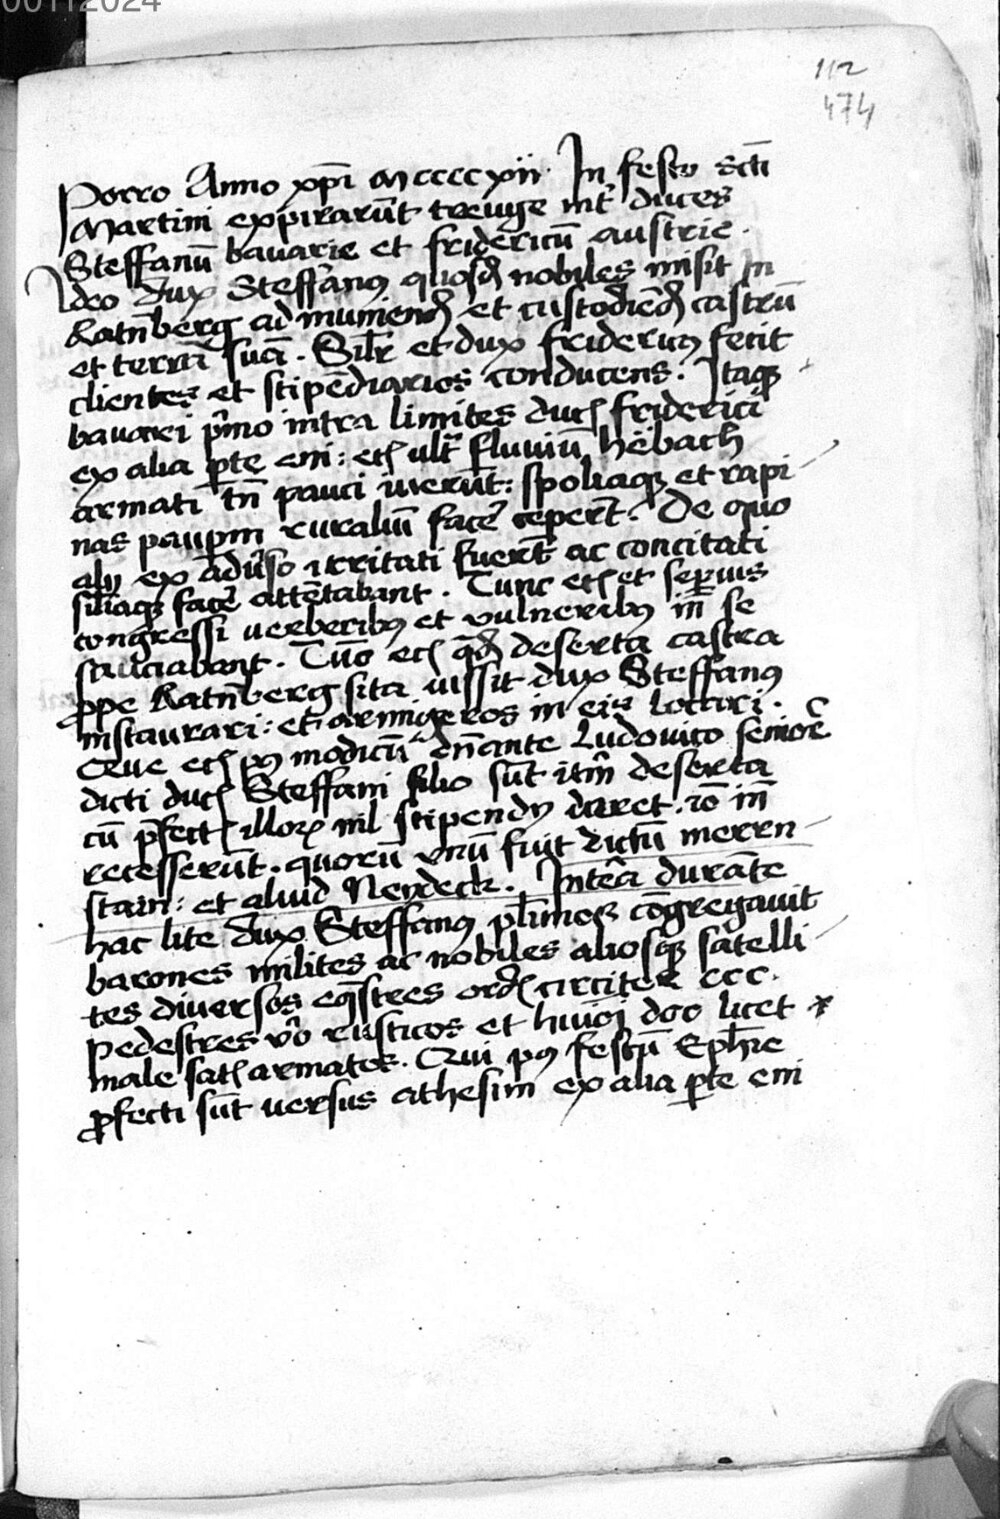 00112024
112
474
Porro Anno xp̄i Mccccxii. In festo scti
Martini expirarūt treuge int̄ duces
Steffanū bavarie et fridericū austrie.
Ideo dux Steffanus quosd nobiles misit in
Ratnberg ad muniend et custodiēd castrū
et terrā suā. Silr et dux fridericus fecit
clientes et stipēdiarios conducens. Itaqz
bavari p̄mo intra limites duc friderici
ex alia pte eni: etc ult̄ fluviū hëbach
armati tn̄ pauci iverūt: spoliaqz et rapi
nas paupm ruraliū facē ceperūt. De quo
alij ex adūso irritati fuerūt ac concitati
siliaqz facē attētabant. Tunc etc et sepius
congressi verberibus et vulneribus in̄ se
sauciabant. Tūo etc qd deserta castra
ppe Ratnberg sita iussit dux Steffanus
instaurari: et armigeros in eis locari.
Que etc pus modicū dn̄ante Ludovico seniore
dicti duc Steffani filio sūt itm̄ deserta
cū pfect illorz nil stipendij daret. iō in̄
recesserūt. quorū unū fuit dictū mern
stain: et aliud Nerdeck. Inteā durāte
hac lite dux Steffanus plimos cōgregavit
barones milites ac nobiles aliosqz satelli
tes diversos eqstres ord circiter ccc.
Pedestres v̄o rusticos et huiōi dcc licet
male sat armatos. Qui pus festū Ephie
pfecti sūt versus athesim ex alia pte eni